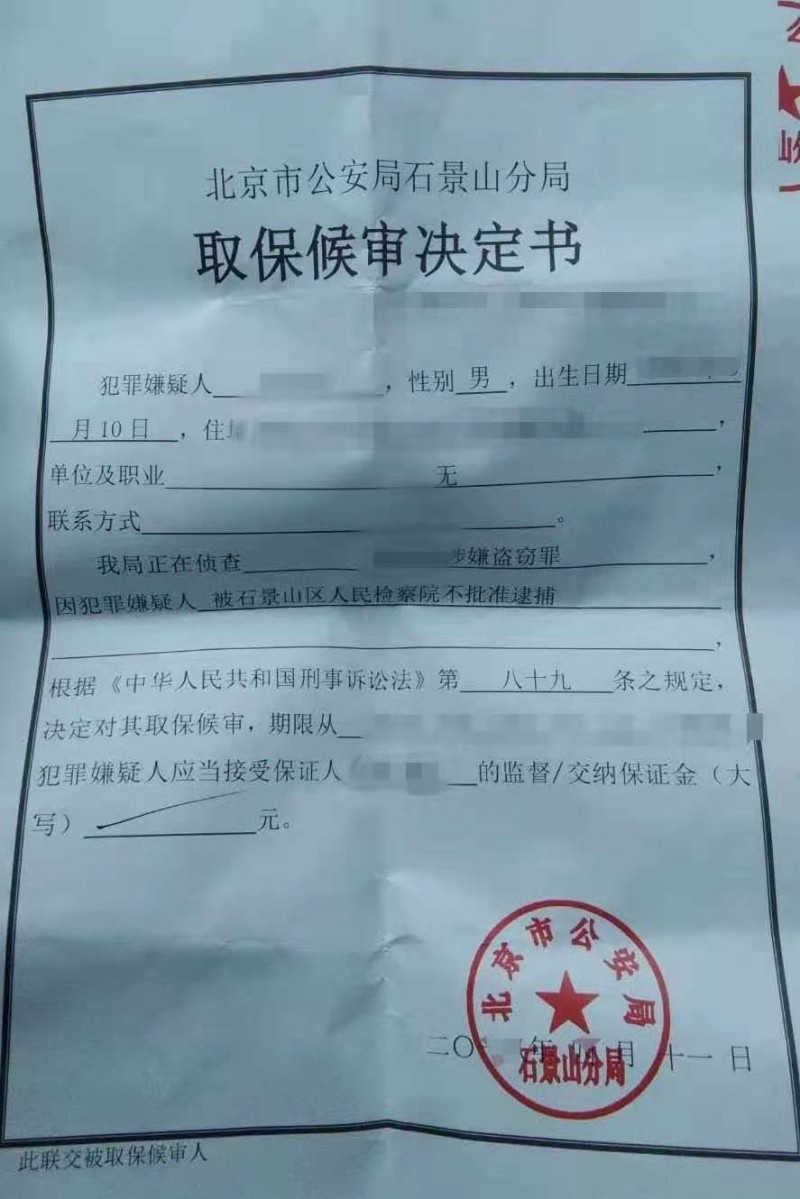 北京市公安局石景山分局
取保候审决定书
犯罪嫌疑人 ,性别 男 ,出生日期
月10日 ,住
单位及职业 无 ,
联系方式 。
我局正在侦查 涉嫌盗窃罪 ,
因犯罪嫌疑人 被石景山区人民检察院不批准逮捕
,
根据《中华人民共和国刑事诉讼法》第 八十九 条之规定,
决定对其取保候审,期限从
犯罪嫌疑人应当接受保证人 的监督/交纳保证金(大
写) 元。
北京市公安局
石景山分局
二〇 年 月十一日
此联交被取保候审人